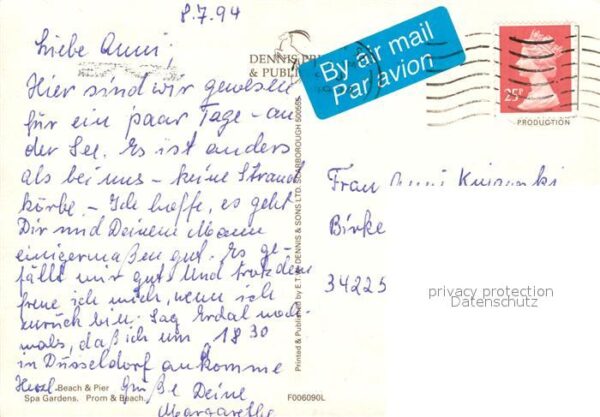 8.7.94
Liebe Anni,
Hier sind wir gewesen
für ein paar Tage - an
der See. Es ist anders
als bei uns - keine Strand
körbe - Ich hoffe, es geht
Dir und Deinem Mann
einigermaßen gut. Es ge-
fällt mir gut. Und trotzdem
freue ich mich, wenn ich
zurück bin. Sag Erdal noch
mals, daß ich um 18 30
in Düsseldorf ankomme
Herzl. Grüße Deine
Margarethe
Beach & Pier
Spa Gardens. Prom & Beach.
F006090L
DENNIS
& PUBLI
Printed & Published by E.T.W. DENNIS & SONS LTD. SCARBOROUGH
By air mail
Par avion
25P
PRODUCTION
Frau Anni
Birke
34225
privacy protection
Datenschutz